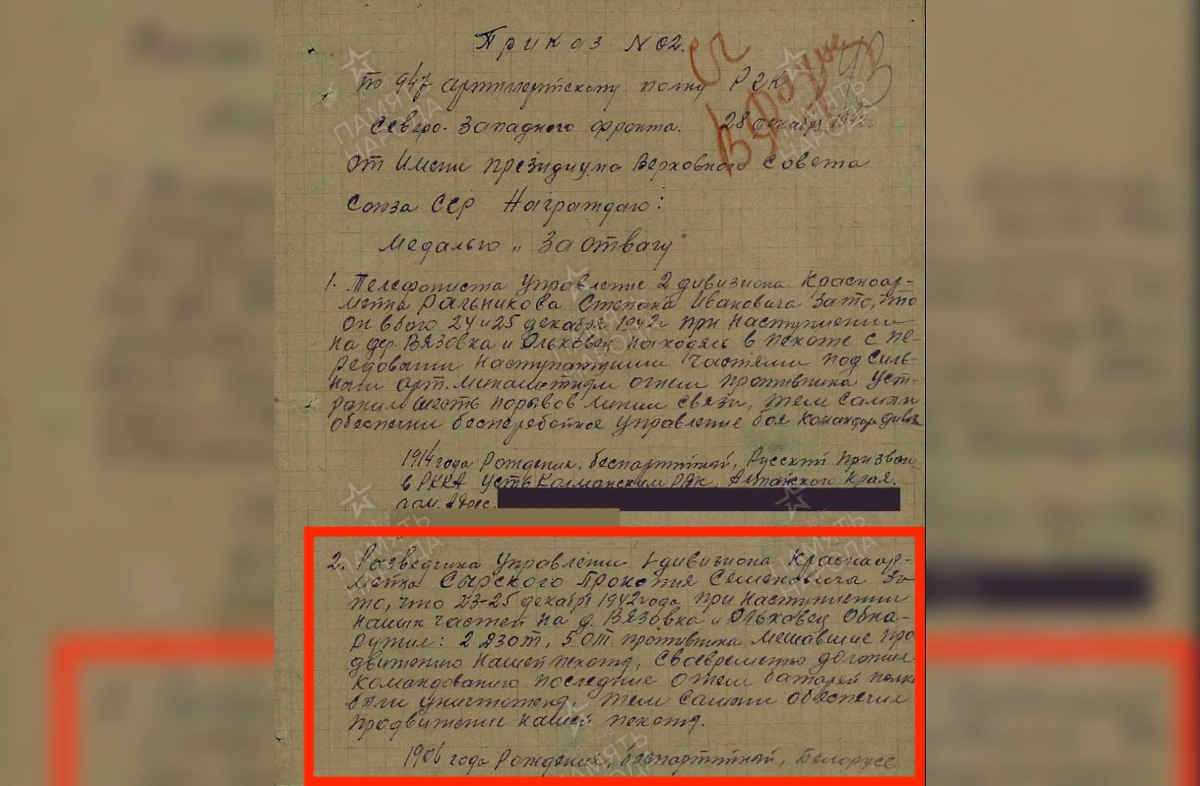 Приказ №02.
По 947 артиллерийскому полку РГК
Северо-Западного фронта. 28 декабря 1942г
от Имени президиума Верховного Совета
Союза ССР Награждаю:
Медалью „За отвагу"
1. Телефониста Управление 2 дивизиона Красноар-
мейца Ральникова Степана Ивановича за то, что
он в бою 24 и 25 декабря 1942г при наступлении
на дер. Вязовка и Ольховец находясь в пехоте с пе-
редовыми наступающими частями под силь-
ным арт. минометным огнем противника уст-
ранил шесть порывов линии связи, тем самым
обеспечил бесперебойное управление боя командиром дивиз
1914 года Рождения, беспартийный, Русский призван
в РККА Усть Калманским РВК, Алтайского Края.
2. Разведчика Управлении 1 дивизиона Красноар-
мейца Сырского Прокопия Семеновича за
то, что 23-25 декабря 1942 года при наступлении
наших частей на д. Вязовка и Ольховец Обна-
ружил: 2 ДЗОТ, 5 ОТ. противника мешавшие про
движению нашей пехоты, своевременно доложил
командованию последние огнем батарей полка
были уничтожены, тем самым обеспечил
продвижение нашей пехоты.
1906 года Рождение, беспартийный, Белорусс
ПАМЯТЬ
НАРОДА